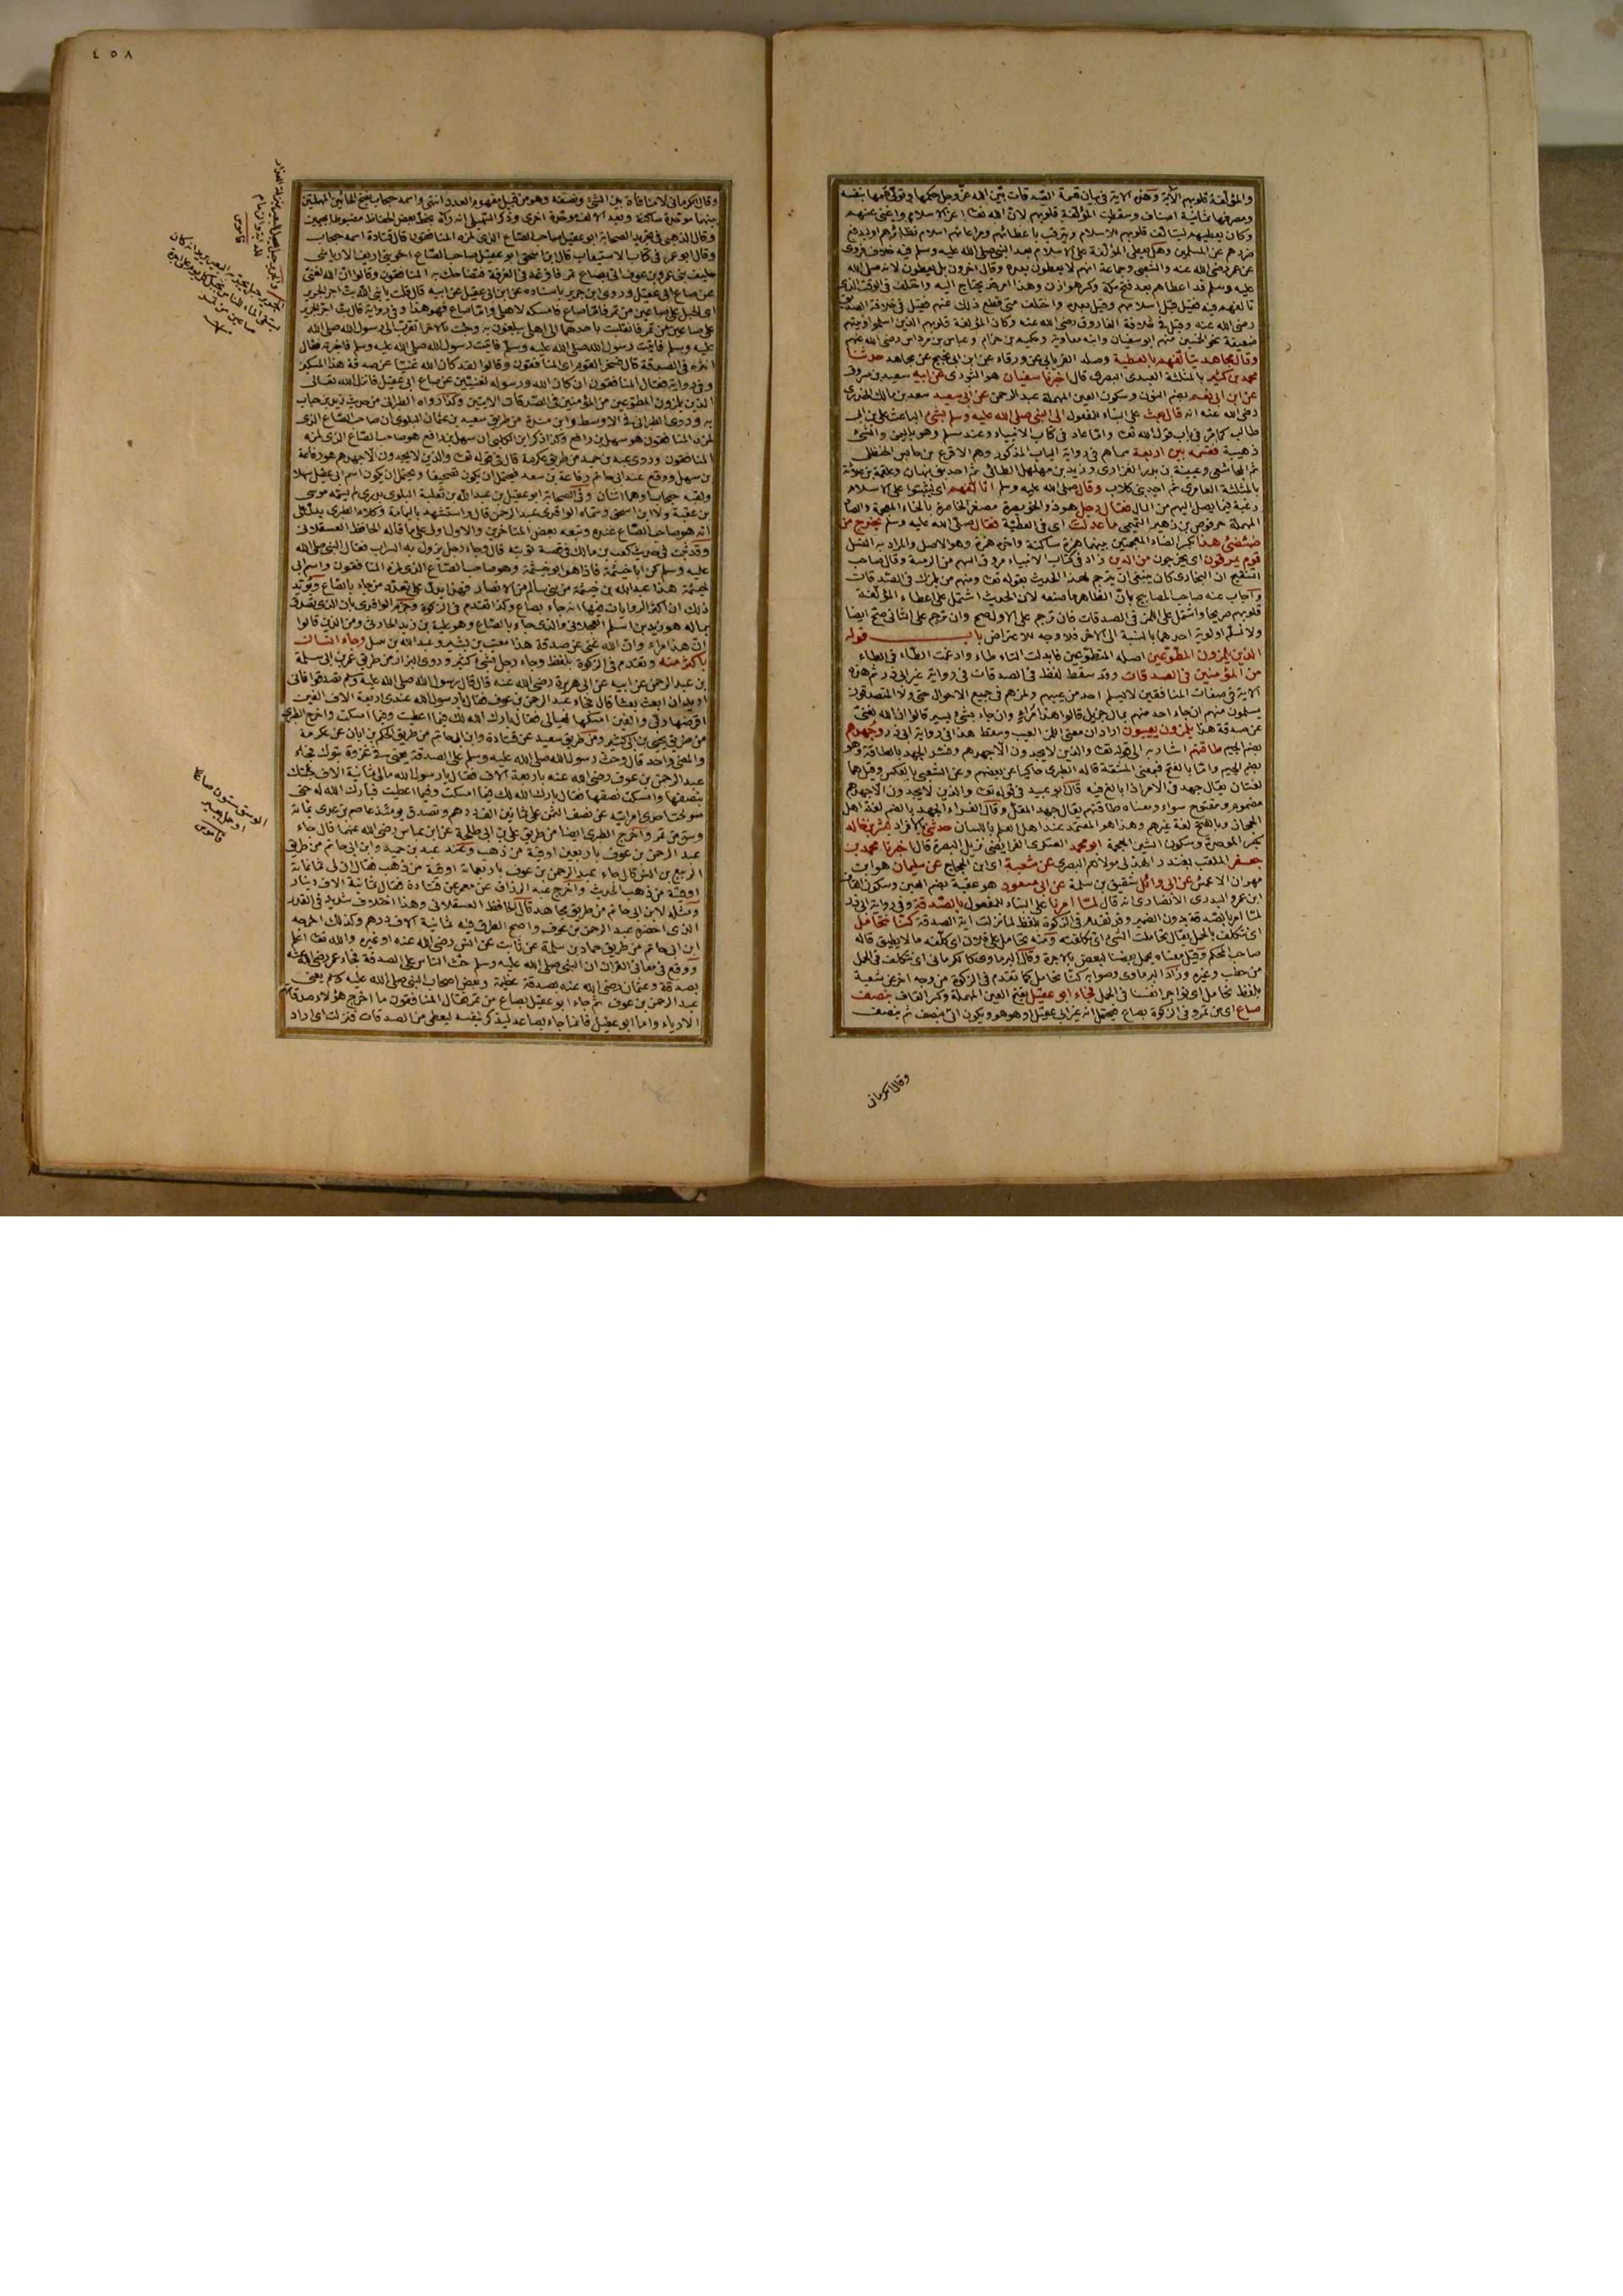 والمؤلفة قلوبهم الآية وهذه الآية في بيان قسمة الصدقات بين الله عز وجل حكمها وتولى قسمها بنفسه
ومصرفها ثمانية اصناف وسقطت المؤلفة قلوبهم لان الله تعا اعز الاسلام واغنى عنهم
وكان يعطيهم ليتالف قلوبهم للاسلام ويترقب باعطائهم ومراعاتهم اسلام نظائرهم او ليدفع
ضررهم عن المسلمين وهل يعطى المؤلفة على الاسلام بعد النبي صلى الله عليه وسلم فيه خلاف فروى
عن عمر رضي الله عنه والشعبي وجماعة انهم لا يعطون بعده وقال اخرون بل يعطون لانه صلى الله
عليه وسلم قد اعطاهم بعد فتح مكة وكسر هوازن وهذا امر قد يحتاج اليه واختلف في الوقت الذي
تالفهم فيه فقيل قبل اسلامهم وقيل بعده واختلف متى قطع ذلك عنهم فقيل في خلافة الصديق
رضي الله عنه وقيل في خلافة الفاروق رضي الله عنه وكان المؤلفة قلوبهم الذين اسلموا ونيتهم
ضعيفة نحو الخمسين منهم ابو سفيان وابنه معاوية وحكيم بن حزام وعباس بن مرداس رضي الله عنهم
وقال مجاهد يتالفهم بالعطية وصله الفريابي عن ورقاء عن ابن ابي نجيح عن مجاهد حدثنا
محمد بن كثير بالمثلثة العبدي البصري قال اخبرنا سفيان هو الثوري عن ابيه سعيد بن مسروق
عن ابن ابي نعم بضم النون وسكون العين المهملة عبد الرحمن عن ابي سعيد سعد بن مالك الخدري
رضي الله عنه انه قال بعث على البناء للمفعول الى النبي صلى الله عليه وسلم بشيء الباعث علي بن ابي
طالب كما مر في باب قول الله تعا واما عاد في كتاب الانبياء وعند مسلم وهو باليمن والشيء
ذهيبة فقسمه بين اربعة سماهم في رواية الباب المذكور وهم الاقرع بن حابس الحنظلي
ثم المجاشعي وعيينة بن بدر الفزاري وزيد بن مهلهل الطائي ثم احد بني نبهان وعلقمة بن علاثة
بالمثلثة العامري ثم احد بني كلاب وقال صلى الله عليه وسلم اتالفهم اي ليثبتوا على الاسلام
رغبة فيما يصل اليهم من المال فقال رجل هو ذو الخويصرة مصغر الخاصرة بالخاء المعجمة والصاد
المهملة حرقوص بن زهير التميمي ما عدلت اي في العطية فقال صلى الله عليه وسلم يخرج من
ضئضئ هذا بكسر الضاد المعجمتين بينهما همزة ساكنة واخره همزة وهو الاصل والمراد به النسل
قوم يمرقون اي يخرجون من الدين زاد في كتاب الانبياء مروق السهم من الرمية وقال صاحب
التنقيح ان البخاري كان ينبغي ان يترجم لهذا الحديث بقوله تعا ومنهم من يلمزك في الصدقات
واجاب عنه صاحب المصابيح بان الظاهر ما صنعه لان الحديث اشتمل على اعطاء المؤلفة
قلوبهم صريحا واشتمل على اللمز في الصدقات فان ترجم على الاول صح وان ترجم على الثاني صح ايضا
ولا نسلم اولوية احدهما بالنسبة الى الاخر فلا وجه للاعتراض باب قوله
الذين يلمزون المطوعين اصله المتطوعين فابدلت التاء طاء وادغمت الطاء في الطاء
من المؤمنين في الصدقات وقد سقط لفظ في الصدقات في رواية غير ابي ذر ثم هذه
الاية في صفات المنافقين لا يسلم احد من عيبهم ولمزهم في جميع الاحوال حتى ولا المتصدقون
يسلمون منهم ان جاء احد منهم بمال جزيل قالوا هذا مراء وان جاء بشيء يسير قالوا ان الله لغني
عن صدقة هذا يلمزون يعيبون اراد ان معنى اللمز العيب وسقط هذا في رواية ابي ذر وجهدهم
بضم الجيم طاقتهم اشار به الى قوله تعا والذين لا يجدون الا جهدهم وفسر الجهد بالطاقة وهو
بضم الجيم واما بالفتح فبمعنى المشقة قاله الطبري حاكيا عن بعضهم وعن الشعبي بالعكس وقيل هما
لغتان يقال جهد في الامر اذا بالغ فيه قال ابو عبيد في قوله تعا والذين لا يجدون الا جهدهم
مضموم ومفتوح سواء ومعناه طاقتهم يقال جهد المقل وقال الفراء الجهد بالضم لغة اهل
الحجاز وبالفتح لغة غيرهم وهذا هو المعتمد عند اهل العلم باللسان حدثني بالافراد بشر بن خالد
بكسر الموحدة وسكون الشين المعجمة ابو محمد العسكري الفرائضي نزيل البصرة قال اخبرنا محمد بن
جعفر الملقب بغندر الهذلي مولاهم البصري عن شعبة اي ابن الحجاج عن سليمان هو ابن
مهران الاعمش عن ابي وائل شقيق بن سلمة عن ابي مسعود هو عقبة بضم العين وسكون القاف
ابن عمرو البدري الانصاري انه قال لما امرنا على البناء للمفعول بالصدقة وفي رواية ابي ذر
لما امر بالصدقة بدون الضمير وقد تقدم في الزكوة بلفظ لما نزلت اية الصدقة كنا نتحامل
اي نتكلف بالحمل يقال تحاملت الشيء اي تكلفته ومنه تحامل على فلان اي كلفه ما لا يطيق قاله
صاحب المحكم وقيل معناه يحمل بعضنا لبعض بالاجرة وقال البرماوي كالكرماني اي نتكلف في الحمل
من حطب وغيره وزاد البرماوي وصوابه كنا نحامل كما تقدم في الزكوة من وجه اخر عن شعبة
بلفظ نحامل اي نؤاجر انفسنا في الحمل فجاء ابو عقيل بفتح العين المهملة وكسر القاف بنصف
صاع اي من تمر وفي الزكوة بصاع فيحتمل انه غير ابي عقيل او هو هو ويكون اتى بنصف ثم بنصف
وقال الكرماني
٤٥٨
وقال الكرماني لا منافاة بين الشيء ونصفه وهو من قبيل مفهوم العدد انتهى واسمه حبحاب بفتح الحائين المهملتين
بينهما موحدة ساكنة وبعد الالف موحدة اخرى وذكر السهيلي انه رآه بخط بعض الحفاظ مضبوطا بجيمين
وقال الذهبي في تجريد الصحابة ابو عقيل صاحب الصاع الذي لمزه المنافقون قال قتادة اسمه حبحاب
وقال ابو عمر في كتاب الاستيعاب
حليف بني عمرو بن عوف اتى بصاع تمر فافرغه في الصدقة فتضاحك به المنافقون وقالوا ان الله لغني
عن صاع ابي عقيل وروى ابن جرير باسناده عن ابن ابي عقيل عن ابيه قال
على صاعين من تمر فانقلبت باحدهما الى اهلي يبلغون به وجئت بالاخر اتقرب الى رسول الله صلى الله
عليه وسلم فاتيت رسول الله صلى الله عليه وسلم فاخبرته فقال
انثره في الصدقة قال فسخر القوم اي المنافقون وقالوا لقد كان الله غنيا عن صدقة هذا المسكين
وفي رواية فقال المنافقون ان كان الله ورسوله لغنيين عن صاع ابي عقيل فانزل الله تعالى
الذين يلمزون المطوعين من المؤمنين في الصدقات الايتين وكذا رواه الطبراني من حديث زيد بن حباب
به وروى الطبراني في الاوسط وابن مندة من طريق سعيد بن عثمان البلوي ان صاحب الصاع الذي
لمزه المنافقون هو سهل بن رافع وكذا ذكر ابن الكلبي ان سهل بن رافع هو صاحب الصاع الذي لمزه
المنافقون وروى عبد بن حميد من طريق عكرمة قال في قوله تعا والذين لا يجدون الا جهدهم هو رفاعة
بن سهل ووقع عند ابن ابي حاتم رفاعة بن سعد فيحتمل ان يكون تصحيفا ويحتمل ان يكون اسم ابي عقيل سهلا
ولقبه حبحاب او هما اثنان وفي الصحابة ابو عقيل بن عبد الله بن ثعلبة البلوي بدري لم يسمه موسى
بن عقبة ولا ابن اسحق وسماه الواقدي عبد الرحمن قال واستشهد باليمامة وكلام الطبري يدل على
انه هو صاحب الصاع عنده وتبعه بعض المتاخرين والاول اولى على ما قاله الحافظ العسقلاني
وقد ثبت في حديث كعب بن مالك في قصة توبته قال وجاء رجل يزول به السراب فقال النبي صلى الله
عليه وسلم كن ابا خيثمة فاذا هو ابو خيثمة وهو صاحب الصاع الذي لمزه المنافقون واسم ابي
خيثمة هذا عبد الله بن خيثمة من بني سالم من الانصار فهذا يدل على تعدد من جاء بالصاع ويؤيد
ذلك ان اكثر الروايات فيها انه جاء بصاع وكذا تقدم في الزكوة وجزم الواقدي بان الذي تصدق
بماله هو زيد بن اسلم العجلاني والذي جاء بالصاع هو علية بن زيد الحارثي ومن الذين قالوا
ان هذا مراء وان الله غني عن صدقة هذا معتب بن قشير وعبد الله بن نبتل وجاء انسان
باكثر منه وتقدم في الزكوة بلفظ وجاء رجل بشيء كثير وروى البزار من طريق عمر بن ابي سلمة
بن عبد الرحمن عن ابيه عن ابي هريرة رضي الله عنه قال قال رسول الله صلى الله عليه وسلم تصدقوا فاني
اريد ان ابعث بعثا قال فجاء عبد الرحمن بن عوف فقال يا رسول الله عندي اربعة الاف الفين
اقرضها ربي والفين امسكها لعيالي فقال بارك الله لك فيما اعطيت وفيما امسكت واخرج الطبري
من طريق يحيى بن ابي كثير ومن طريق سعيد عن قتادة وابن ابي حاتم من طريق الحكم بن ابان عن عكرمة
والمعنى واحد قال وحث رسول الله صلى الله عليه وسلم على الصدقة يعني في غزوة تبوك فجاء
عبد الرحمن بن عوف رضي الله عنه باربعة الاف فقال يا رسول الله مالي ثمانية الاف جئتك
بنصفها وامسكت نصفها فقال بارك الله لك فيما امسكت وفيما اعطيت فبارك الله له حتى
صولحت احدى امراتيه عن نصف الثمن على ثمانين الف درهم وتصدق يومئذ عاصم بن عدي بمائة
وسق من تمر واخرج الطبري ايضا من طريق علي بن ابي طلحة عن ابن عباس رضي الله عنهما قال جاء
عبد الرحمن بن عوف باربعين اوقية من ذهب وعند عبد بن حميد وابن ابي حاتم من طريق
الربيع بن انس قال جاء عبد الرحمن بن عوف باربعمائة اوقية من ذهب فقال ان لي ثمانمائة
اوقية من ذهب الحديث واخرج عبد الرزاق عن معمر عن قتادة فقال ثمانية الاف دينار
ومثله لابن ابي حاتم من طريق مجاهد قال الحافظ العسقلاني وهذا اختلاف شديد في القدر
الذي احضره عبد الرحمن بن عوف واصح الطرق فيه ثمانية الاف درهم وكذلك اخرجه
ابن ابي حاتم من طريق حماد بن سلمة عن ثابت عن انس رضي الله عنه او غيره والله تعا اعلم
ووقع في معاني القران ان النبي صلى الله عليه وسلم حث الناس على الصدقة فجاء عمر رضي الله عنه
بصدقة وعثمان رضي الله عنه بصدقة عظيمة وبعض اصحاب النبي صلى الله عليه وسلم يعني
عبد الرحمن بن عوف ثم جاء ابو عقيل بصاع من تمر فقال المنافقون ما اخرج هؤلاء صدقاتهم
الا رياء واما ابو عقيل فانما جاء بصاعه ليذكر نفسه ليعطى من الصدقات فنزلت اي اراد
قاموس
الوسق ستون صاعا
او حمل بعير
قاموس